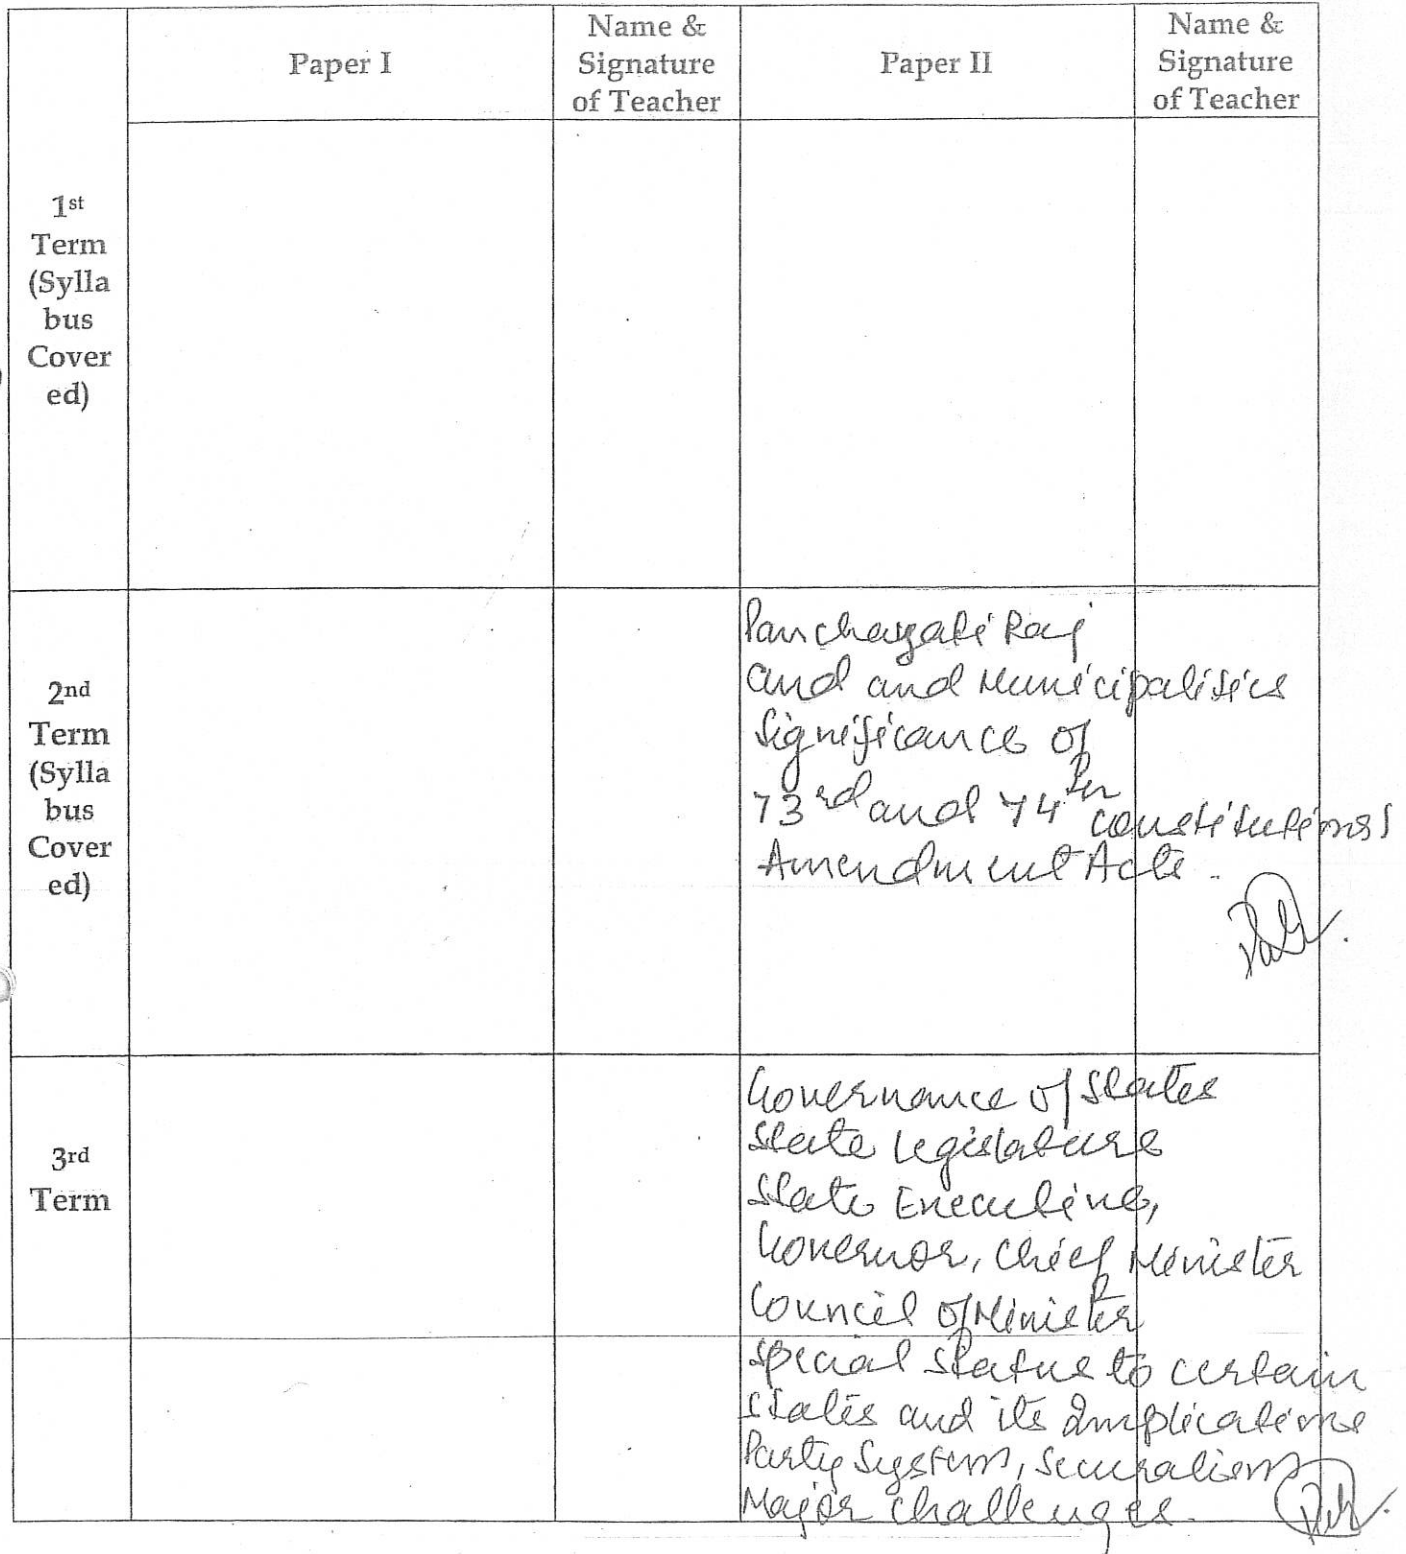 Paper I
Name &
Signature
of Teacher
Paper II
Name &
Signature
of Teacher
1st
Term
(Sylla
bus
Cover
ed)
2nd
Term
(Sylla
bus
Cover
ed)
Panchayati Raj
and and Municipalities
Significance of
73rd and 74th constitutional
Amendment Acts.
3rd
Term
Governance of States
State Legislature
State Executive,
Governor, Chief Minister
Council of Minister
special status to certain
states and its Implications
Party System, Securalism
Major challenges.